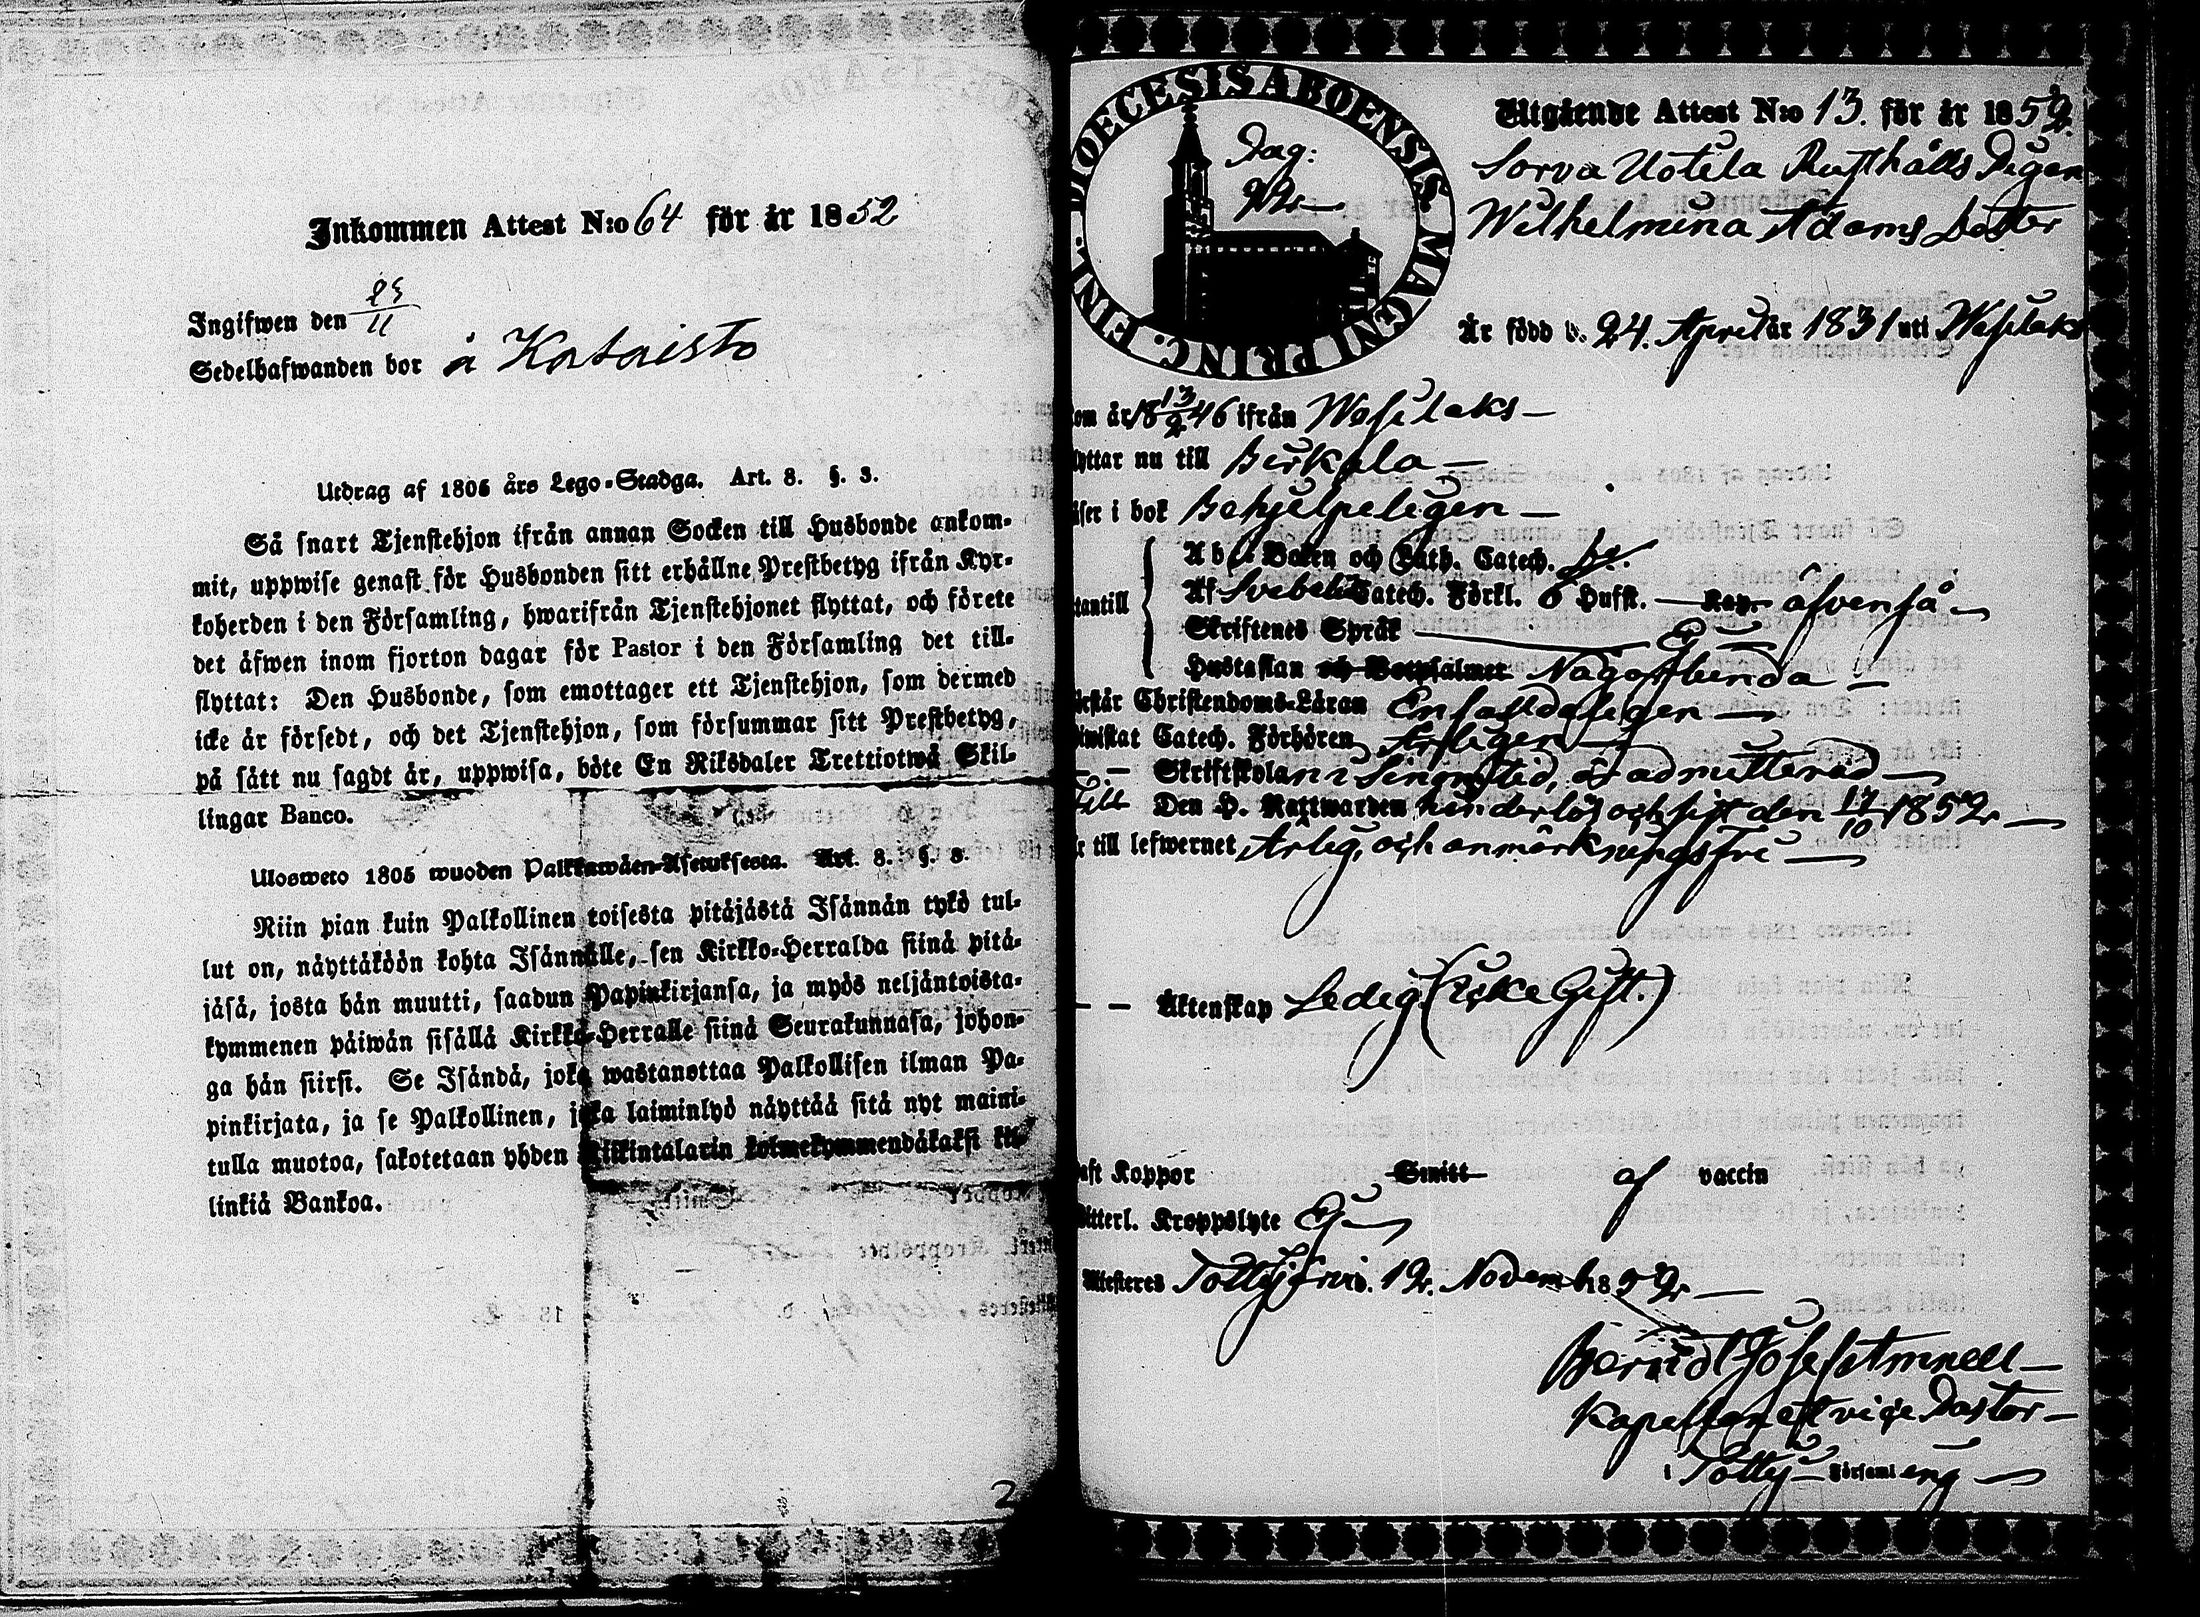 Inkommen Attest N:o 64 för år 1852
Ingifwen den 23/11
Sedelhafwanden bor å Kataisto
Utdrag af 1805 års Lego-Stadga. Art. 8. §. 3.
Så snart Tjenstehjon ifrån annan Socken till Husbonde ankom-
mit, uppwise genast för Husbonden sitt erhållne Prestbetyg ifrån Kyr-
koherden i den Församling, hwarifrån Tjenstehjonet flyttat, och förete
det äfwen inom fjorton dagar för Pastor i den Församling det till-
flyttat: Den Husbonde, som emottager ett Tjenstehjon, som dermed
icke är försedt, och det Tjenstehjon, som försummar sitt Prestbetyg,
på sätt nu sagdt är, uppwisa, böte En Riksdaler Trettiotwå Skil-
lingar Banco.
Ulosweto 1805 wuoden Palkkawäen-Asetuksesta. Art. 8. §. 3.
Niin pian kuin Palkollinen toisesta pitäjästä Isännän tykö tul-
lut on, näyttäköön kohta Isännälle, sen Kirkko-Herralda siinä pitä-
jäsä, josta hän muutti, saadun Papinkirjansa, ja myös neljäntoista-
kymmenen päiwän sisällä Kirkko-Herralle siinä Seurakunnasa, johon-
ga hän siirsi. Se Isändä, joka wastanottaa Palkollisen ilman Pa-
pinkirjata, ja se Palkollinen, joka laiminlyö näyttää sitä nyt maini-
tulla muotoa, sakotetaan yhden Riikintalarin kolmekymmendäkaksi kil-
linkiä Bankoa.
2
DIOECESIS ABOENSIS MAGNI PRINC. FINL.
Dag:
Utgående Attest N:o 13. för år 1852.
Sorva Uotila Rusthålls Pigan
Wilhelmina Adams Dotter
Är född d. 24. April år 1831 uti Wesilaks
om år 18 13/2 46 ifrån Wesilaks —
yttar nu till Birkala —
äser i bok Behjelpeligen —
Ab d Boken och Luth. Catech.
Af Svebelii Catech. Förkl. 6 Hufst. — Kap. äfvenså —
utantill
Skriftenes Språk — Ej —
Hustaflan och Botpsalmer Någorlunda —
örstår Christendoms-Läran Enfalldeligen —
iwistat Catech. Förhören Årligen —
— — Skriftskolan i sinom tid, är admitterad —
till Den H. Nattwarden hinderlös och sist den 17/10 1852 —
r till lefwernet Ärlig, och anmärkningsfri —
— — Äktenskap Ledig (icke Gift.)
aft Koppor Smitt af vaccin
itterl. Kroppslyte Ej —
Attesteres Tottijärvi d. 12. Novemb. 1852 —
Berndt Josef Amnell —
Kapellan et vice Pastor —
i Tottij — Församling —